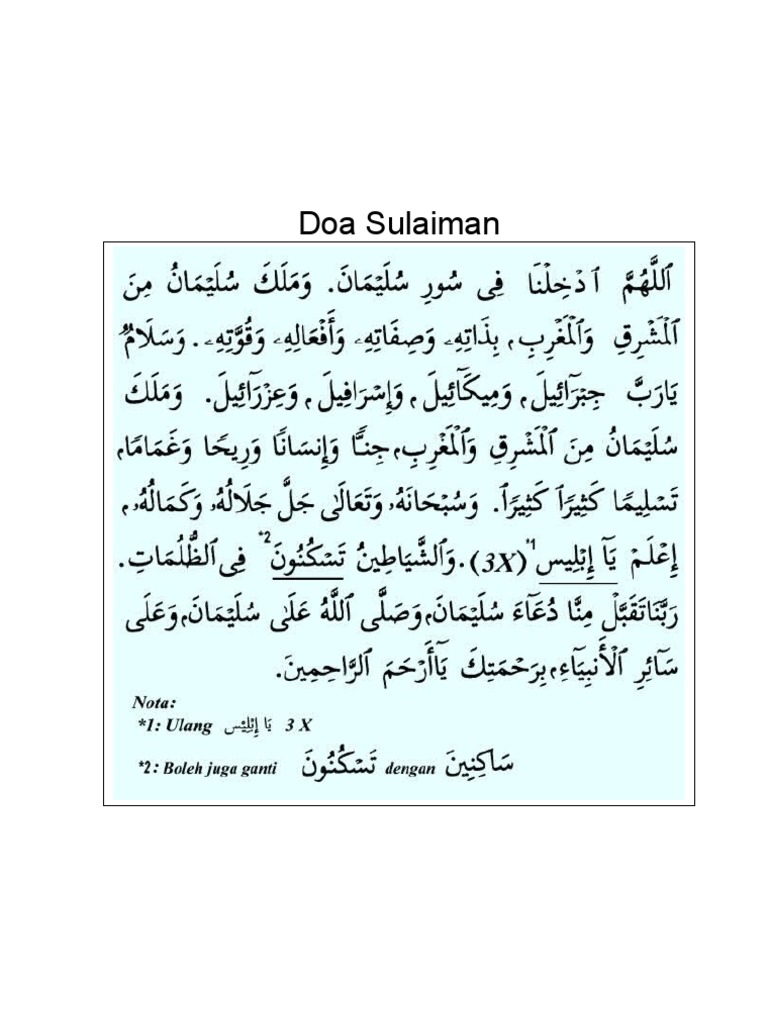 Doa Sulaiman
اَللَّهُمَّ اَدْخِلْنَا فِى سُورِ سُلَيْمَانَ. وَمَلَكَ سُلَيْمَانُ مِنَ
اَلْمَشْرِقِ وَالْمَغْرِبِ، بِذَاتِهِ وَصِفَاتِهِ وَأَفْعَالِهِ وَقُوَّتِهِ. وَسَلَامٌ
يَارَبَّ جِبْرَآئِيلَ، وَمِيكَآئِيلَ، وَإِسْرَافِيلَ، وَعِزْرَآئِيلَ. وَمَلَكَ
سُلَيْمَانُ مِنَ الْمَشْرِقِ وَالْمَغْرِبِ، جِنًّا وَإِنسَانًا وَرِيحًا وَغَمَامًا،
تَسْلِيمًا كَثِيرًا كَثِيرًا. وَسُبْحَانَهُ وَتَعَالَى جَلَّ جَلَالُهُ وَكَمَالُهُ،
إِعْلَمْ يَآ إِبْلِيس*1 (3X). وَالشَّيَاطِينُ تَسْكُنُونَ*2 فِى الظُّلُمَاتِ.
رَبَّنَاتَقَبَّلْ مِنَّا دُعَآءَ سُلَيْمَانَ، وَصَلَّى اللَّهُ عَلَى سُلَيْمَانَ، وَعَلَى
سَآئِرِ الْأَنبِيَآءِ، بِرَحْمَتِكَ يَاأَرْحَمَ الرَّاحِمِينَ.
Nota:
*1: Ulang يَا إِبْلِيْس 3 X
*2: Boleh juga ganti تَسْكُنُونَ dengan سَاكِنِينَ